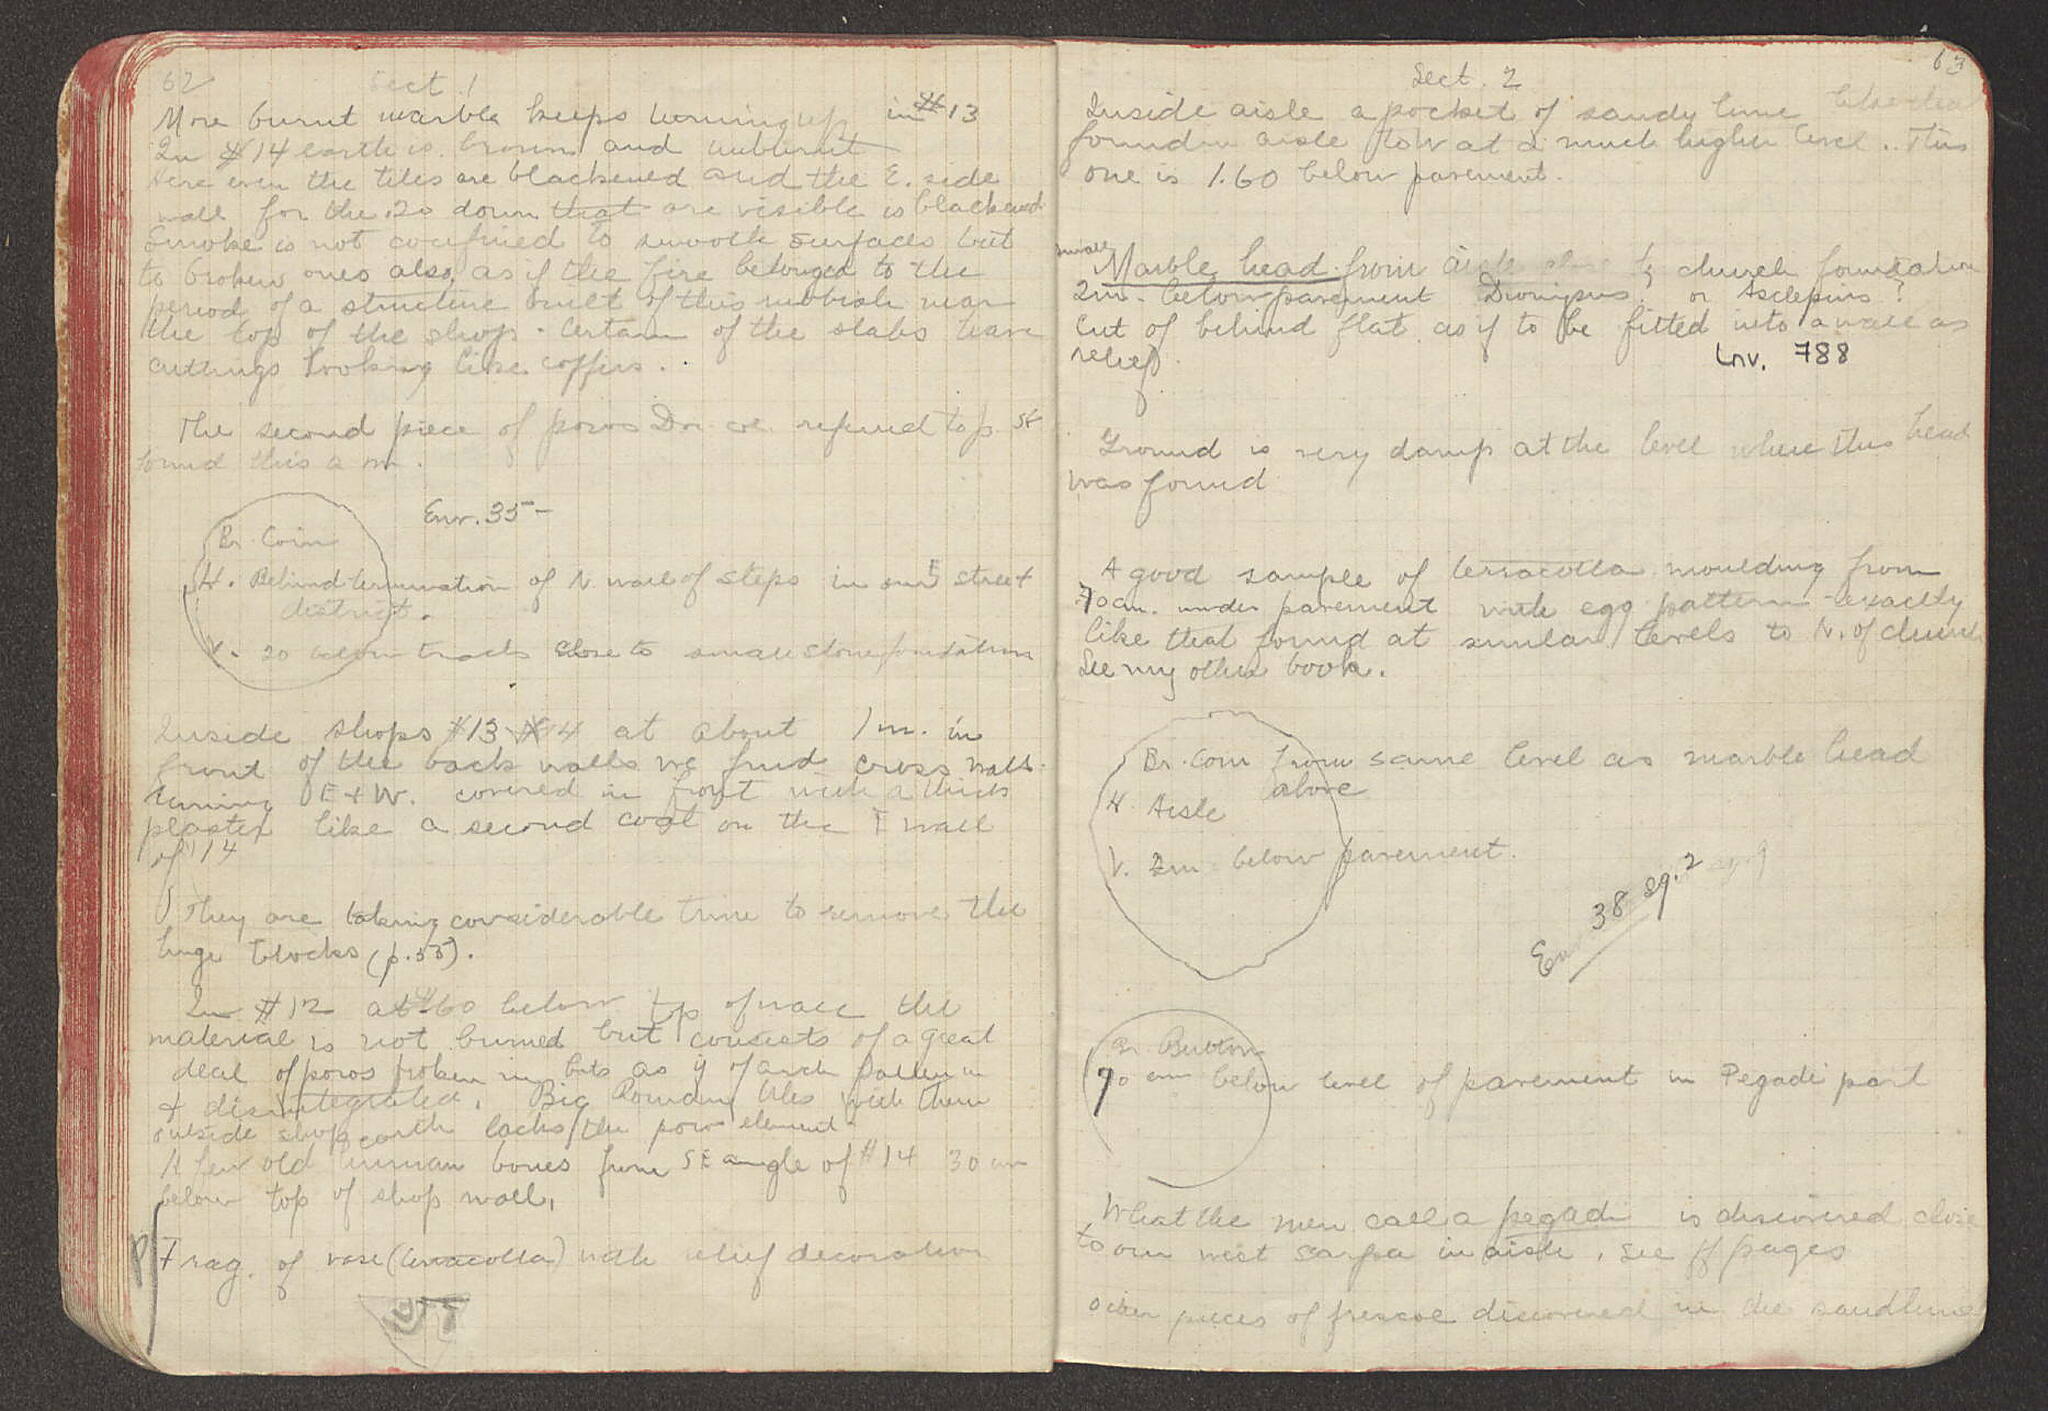 62
Sect. 1
More burnt marble keeps turning up in #13
In #14 earth is brown and unburnt
Here even the tiles are blackened and the E. side
wall for the .20 down that are visible is blackened
Smoke is not confined to smooth surfaces but
to broken ones also, as if the fire belonged to the
period of a structure built of this rubbish near
the top of the shop. Certain of the slabs have
cuttings looking like coffers.
The second piece of poros Dor. col. referred to p.
found this a m.
Env. 35
Br. Coin
H. Behind termination of N wall of steps in our E street
district.
V. 20 below tracks close to small stone foundation
Inside shops #13 #14 at about 1 m. in
front of the back walls we find cross walls
running E + W. covered in front with a thick
plaster like a second coat on the E wall
of #14
They are taking considerable time to remove the
huge blocks (p. 55).
In #12 at .60 below top of wall the
material is not burned but consists of a great
deal of poros broken in bits as if of arch fallen in
+ disintegrated. Big Roman tiles with them
outside shop earth lacks the poros element.
A few old human bones from SE angle of #14 30 cm
below top of shop wall.
Frag. of vase (terracotta) with relief decoration
63
Sect. 2
Inside aisle a pocket of sandy lime like that
found in aisle to W at a much higher level. This
one is 1.60 below pavement.
small
Marble head from aisle close to church foundation
2m. below pavement Dionysus? or Asclepius?
Cut of behind flat as if to be fitted into a wall as
relief.
Inv. 788
Ground is very damp at the level where this head
was found
A good sample of terracotta moulding from
70 cm. under pavement with egg pattern exactly
like that found at similar levels to N. of church
See my other book.
Br. Coin from same level as marble head
above
H. Aisle
V. 2m below pavement.
Env 38 Sq. 2
Br. Button
70 cm below level of pavement in Pegadi part
What the men call a pegadi is discovered close
to our west scarpa in aisle. See ff pages
Other pieces of frescoe discovered in the sandlime